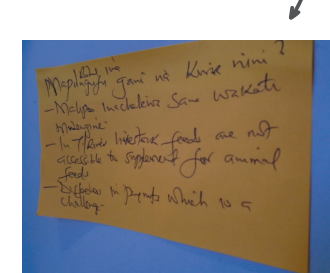 Mapungufu gani na Kwa nini?
- Malipo inachelewa Sana wakati
mwingine.
- In livestock feeds are not
accessible to supplement for animal
feeds
- in which is a
challenge.